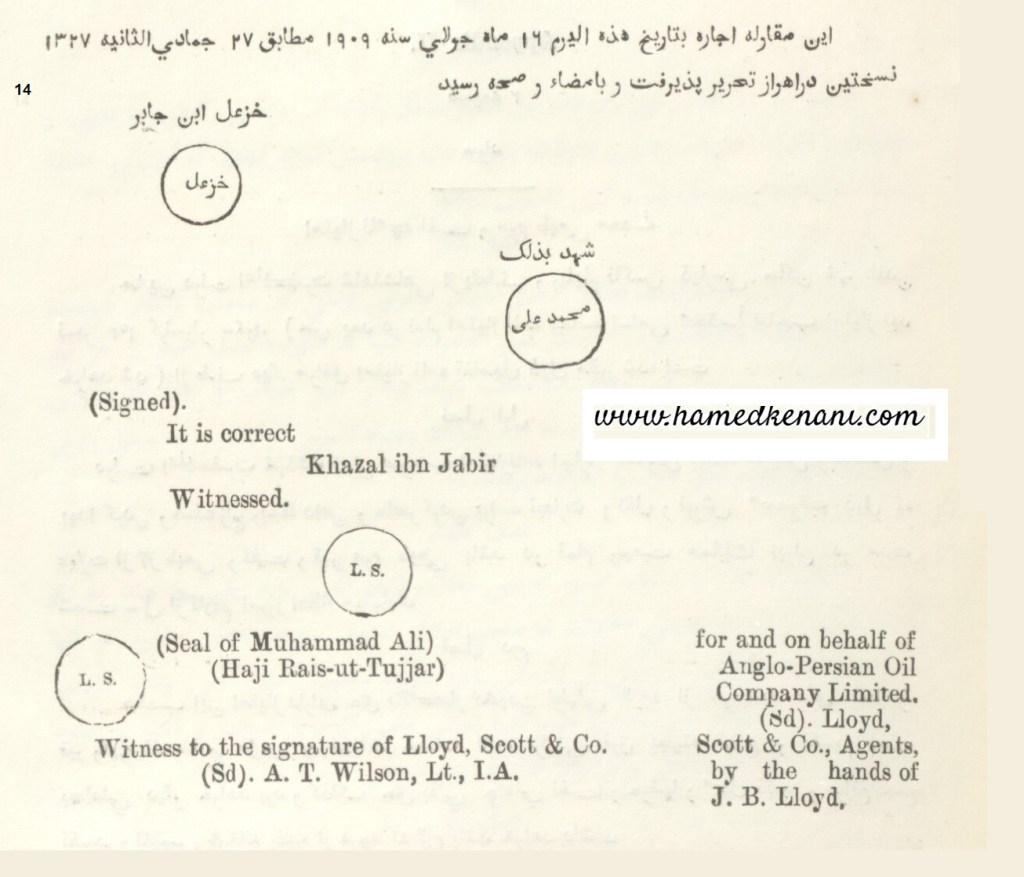 این مقاوله اجاره بتاریخ هذه الیوم ١٦ ماه جولاي سنه ١٩٠٩ مطابق ٢٧ جمادي الثانیه ١٣٢٧
نسختین در اهواز تحریر پذیرفت و بامضاء و صحه رسید
14
خزعل ابن جابر
خزعل
شهد بذلک
محمد علی
(Signed).
www.hamedkenani.com
It is correct
Khazal ibn Jabir
Witnessed.
L. S.
(Seal of Muhammad Ali)
(Haji Rais-ut-Tujjar)
L. S.
for and on behalf of
Anglo-Persian Oil
Company Limited.
(Sd). Lloyd,
Scott & Co., Agents,
by the hands of
J. B. Lloyd,
Witness to the signature of Lloyd, Scott & Co.
(Sd). A. T. Wilson, Lt., I.A.